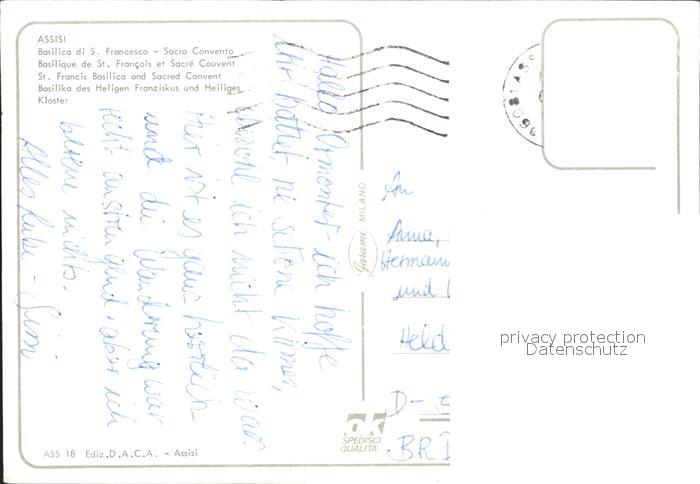 ASSISI
Basilica di S. Francesco - Sacro Convento
Basilique de St. François et Sacré Couvent
St. Francis Basilica and Sacred Convent
Basilika des Heligen Franziskus und Heiliges
Kloster
Hallo ich hoffe
ihr hattet ne schöne Kirmes,
ich nicht da war.
Hier ist es ganz herrlich
und die Wanderung war
echt anstrengend, aber ich
bereue nichts.
Alles Liebe -
Garami MILANO
An
Anna,
Hermann
und
Held
D-
BRD
privacy protection
Datenschutz
ok
SPEDISCI
QUALITA'
ASS 18 Ediz. D.A.C.A. - Assisi